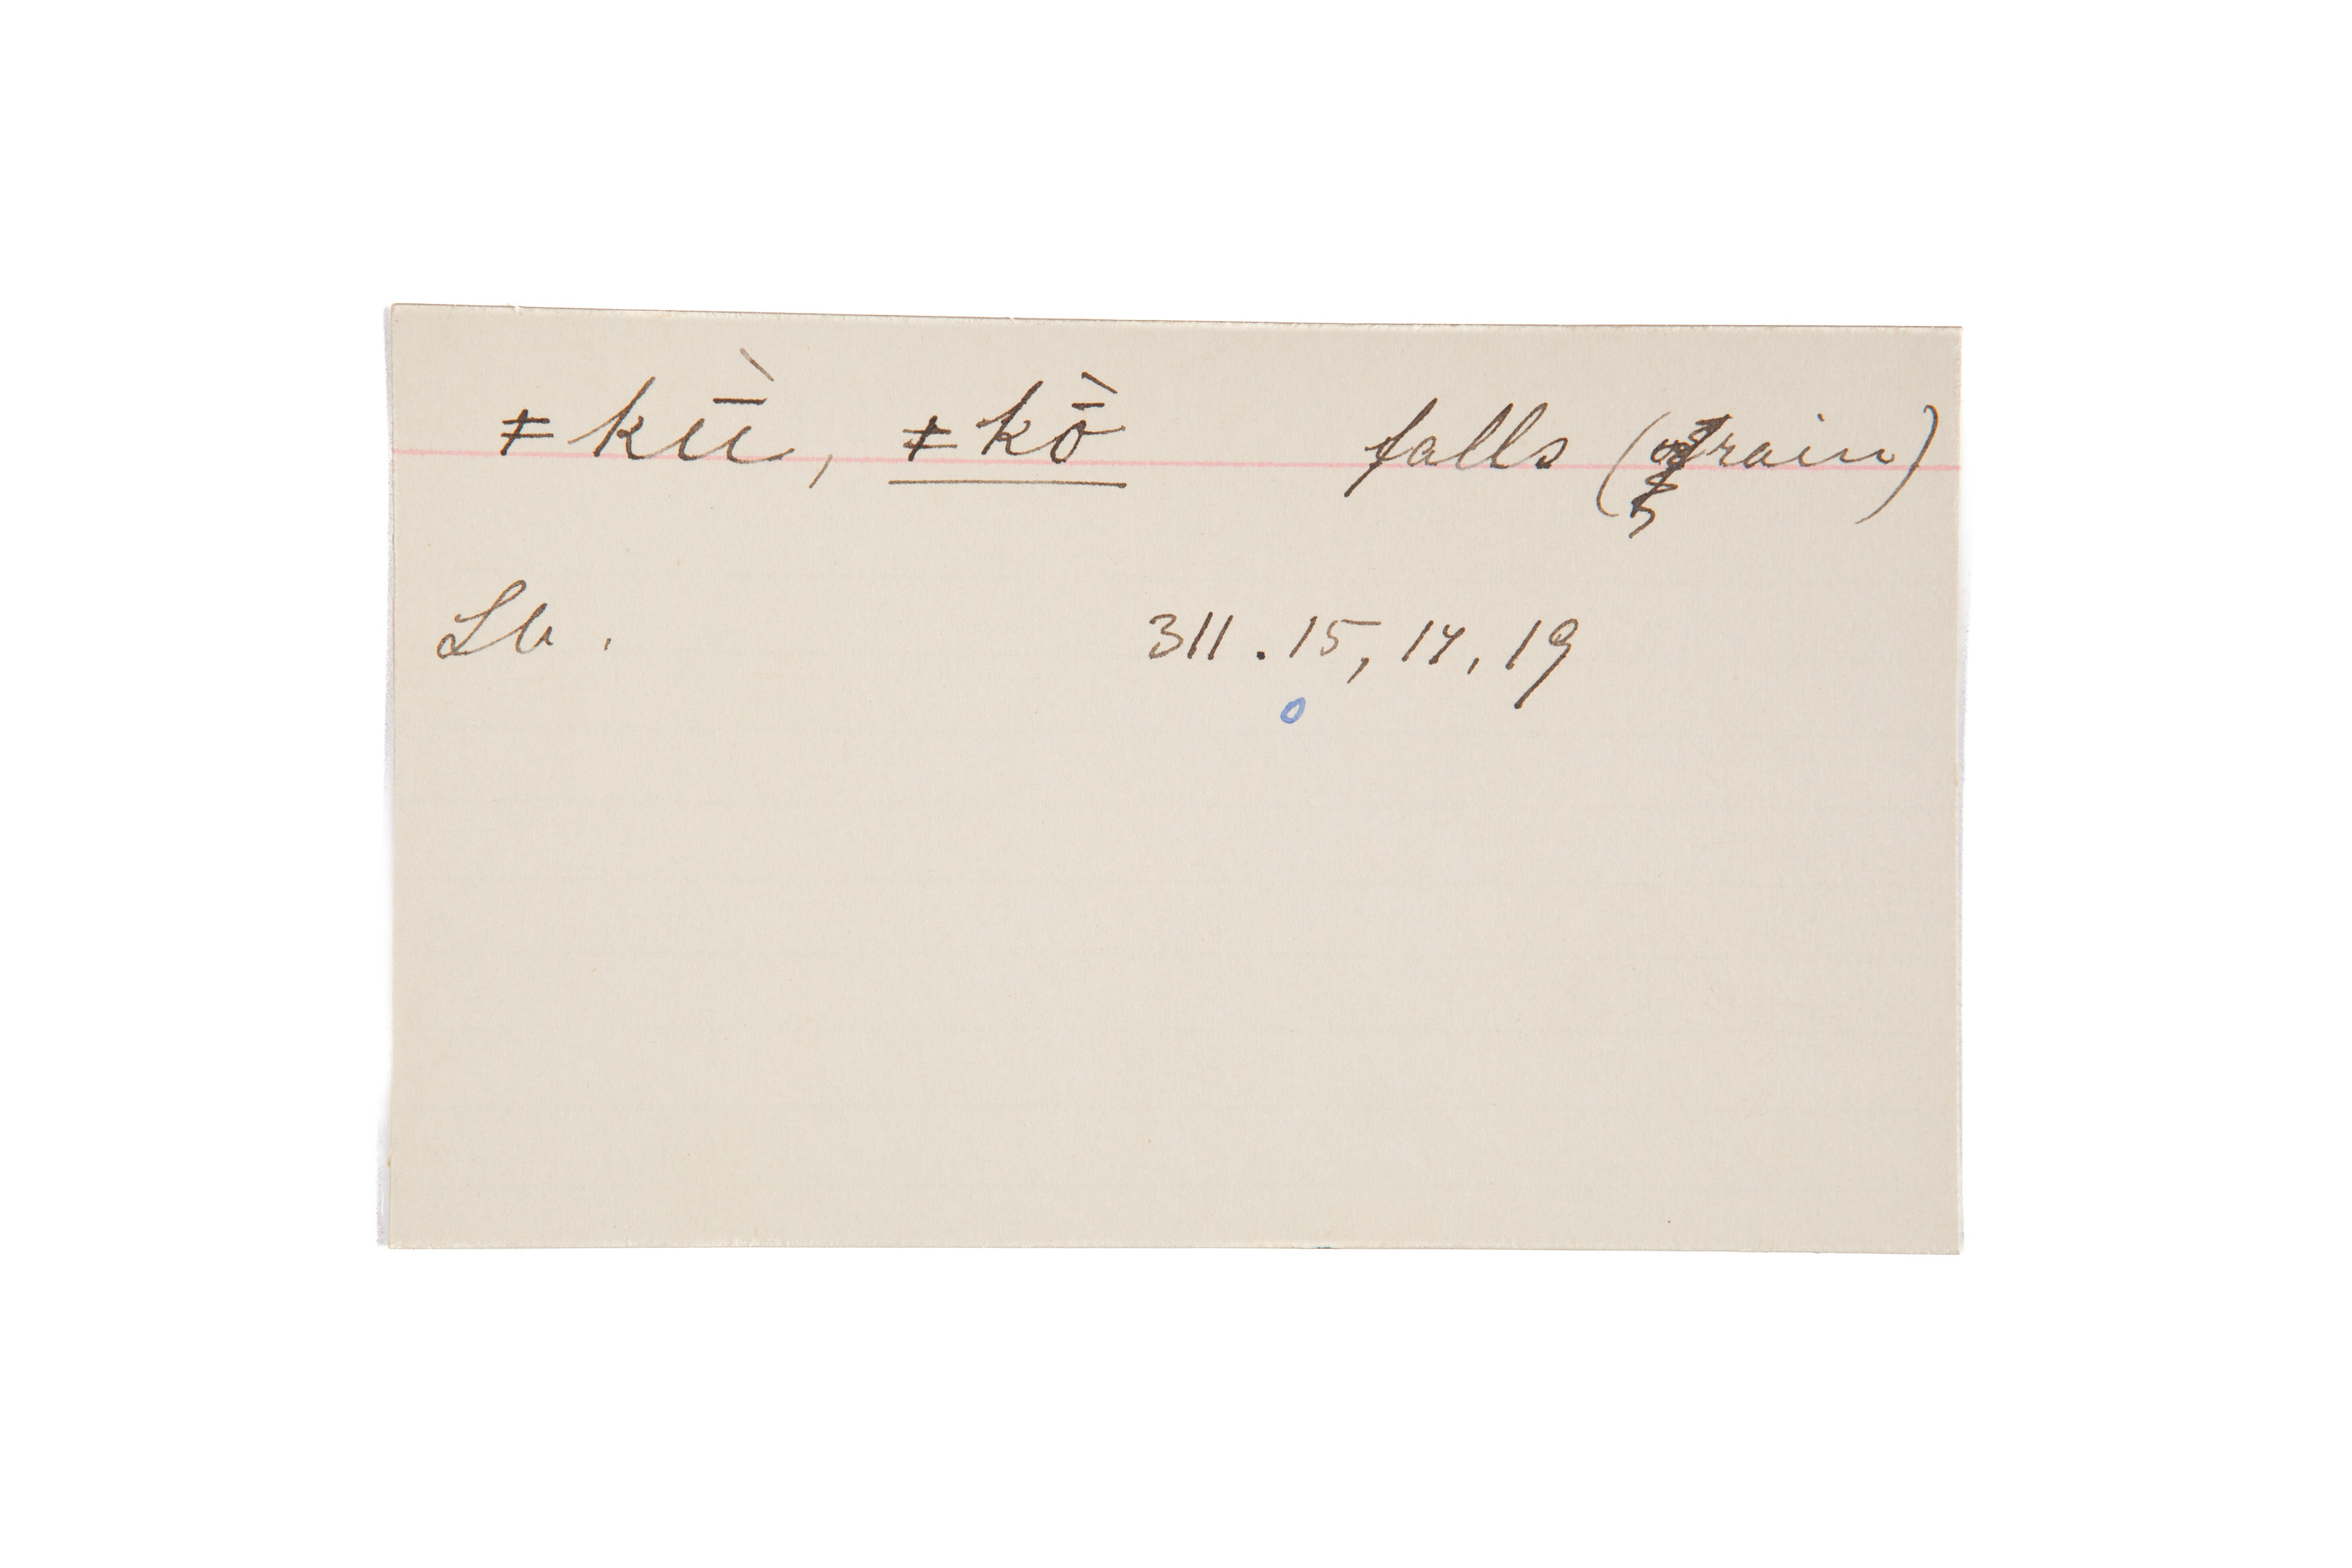 ǂkū̀, ǂkṑ falls (rain)
Lb. 311.15, 17, 19
o